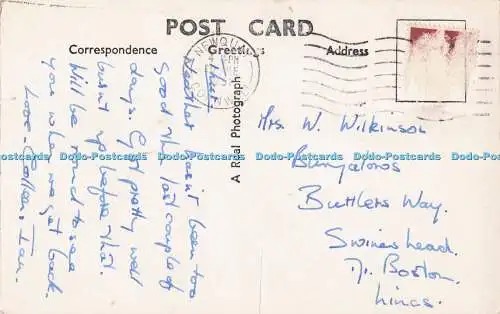 POST CARD
Correspondence
Greetings
Address
NEWQUAY
A Real Photograph
Thur:
Weather hasn't been too
good the last couple of
days. Got pretty well
burnt up before that.
Will be round to see
you when we get back.
Love - Colleen & Ian.
Mrs. W. Wilkinson
Bungalows
Buttlers Way.
Swineshead.
Nr. Boston.
Lincs.
Dodo-Postcards Dodo-Postcards Dodo-Postcards Dodo-Postcards Dodo-Postcards Dodo-Postcards Dodo-Postcards